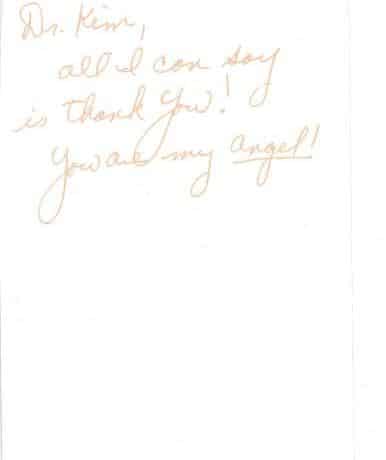 Dr. Kim,
all I can say
is thank you!
You are my angel!